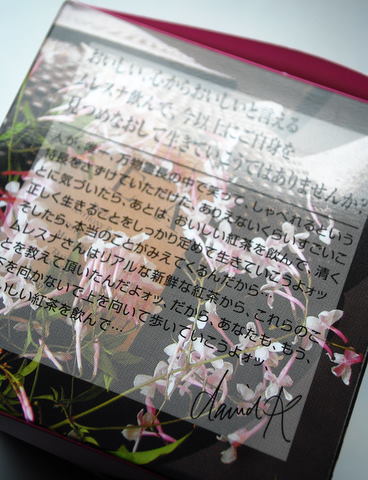 おいしい、心からおいしいと言える
ムレスナ飲んで、今以上にご自身を
見つめなおして生きていこうではありませんか?
人も、俺も、万物霊長の中で笑って、しゃべれるという
特長をさずけていただけた、ありえないくらいすごいこ
とに気づいたら、あとは、おいしい紅茶を飲んで、清く
正しく生きることをしっかり定めて生きていこうよオッ
でしたら、本当のことがみえてくるんだから…
ムレスナさんはリアルな新鮮な紅茶から、これらのこ
とを教えて頂いたんだよオッ、だから、あなたも、もう、
下を向かないで上を向いて歩いていこうよオッ
いしい紅茶を飲んで…
david K